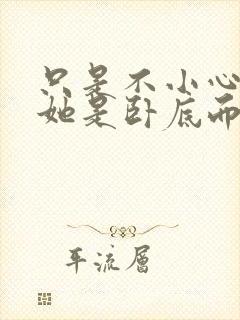 只是不小心
她是卧底而
平流层